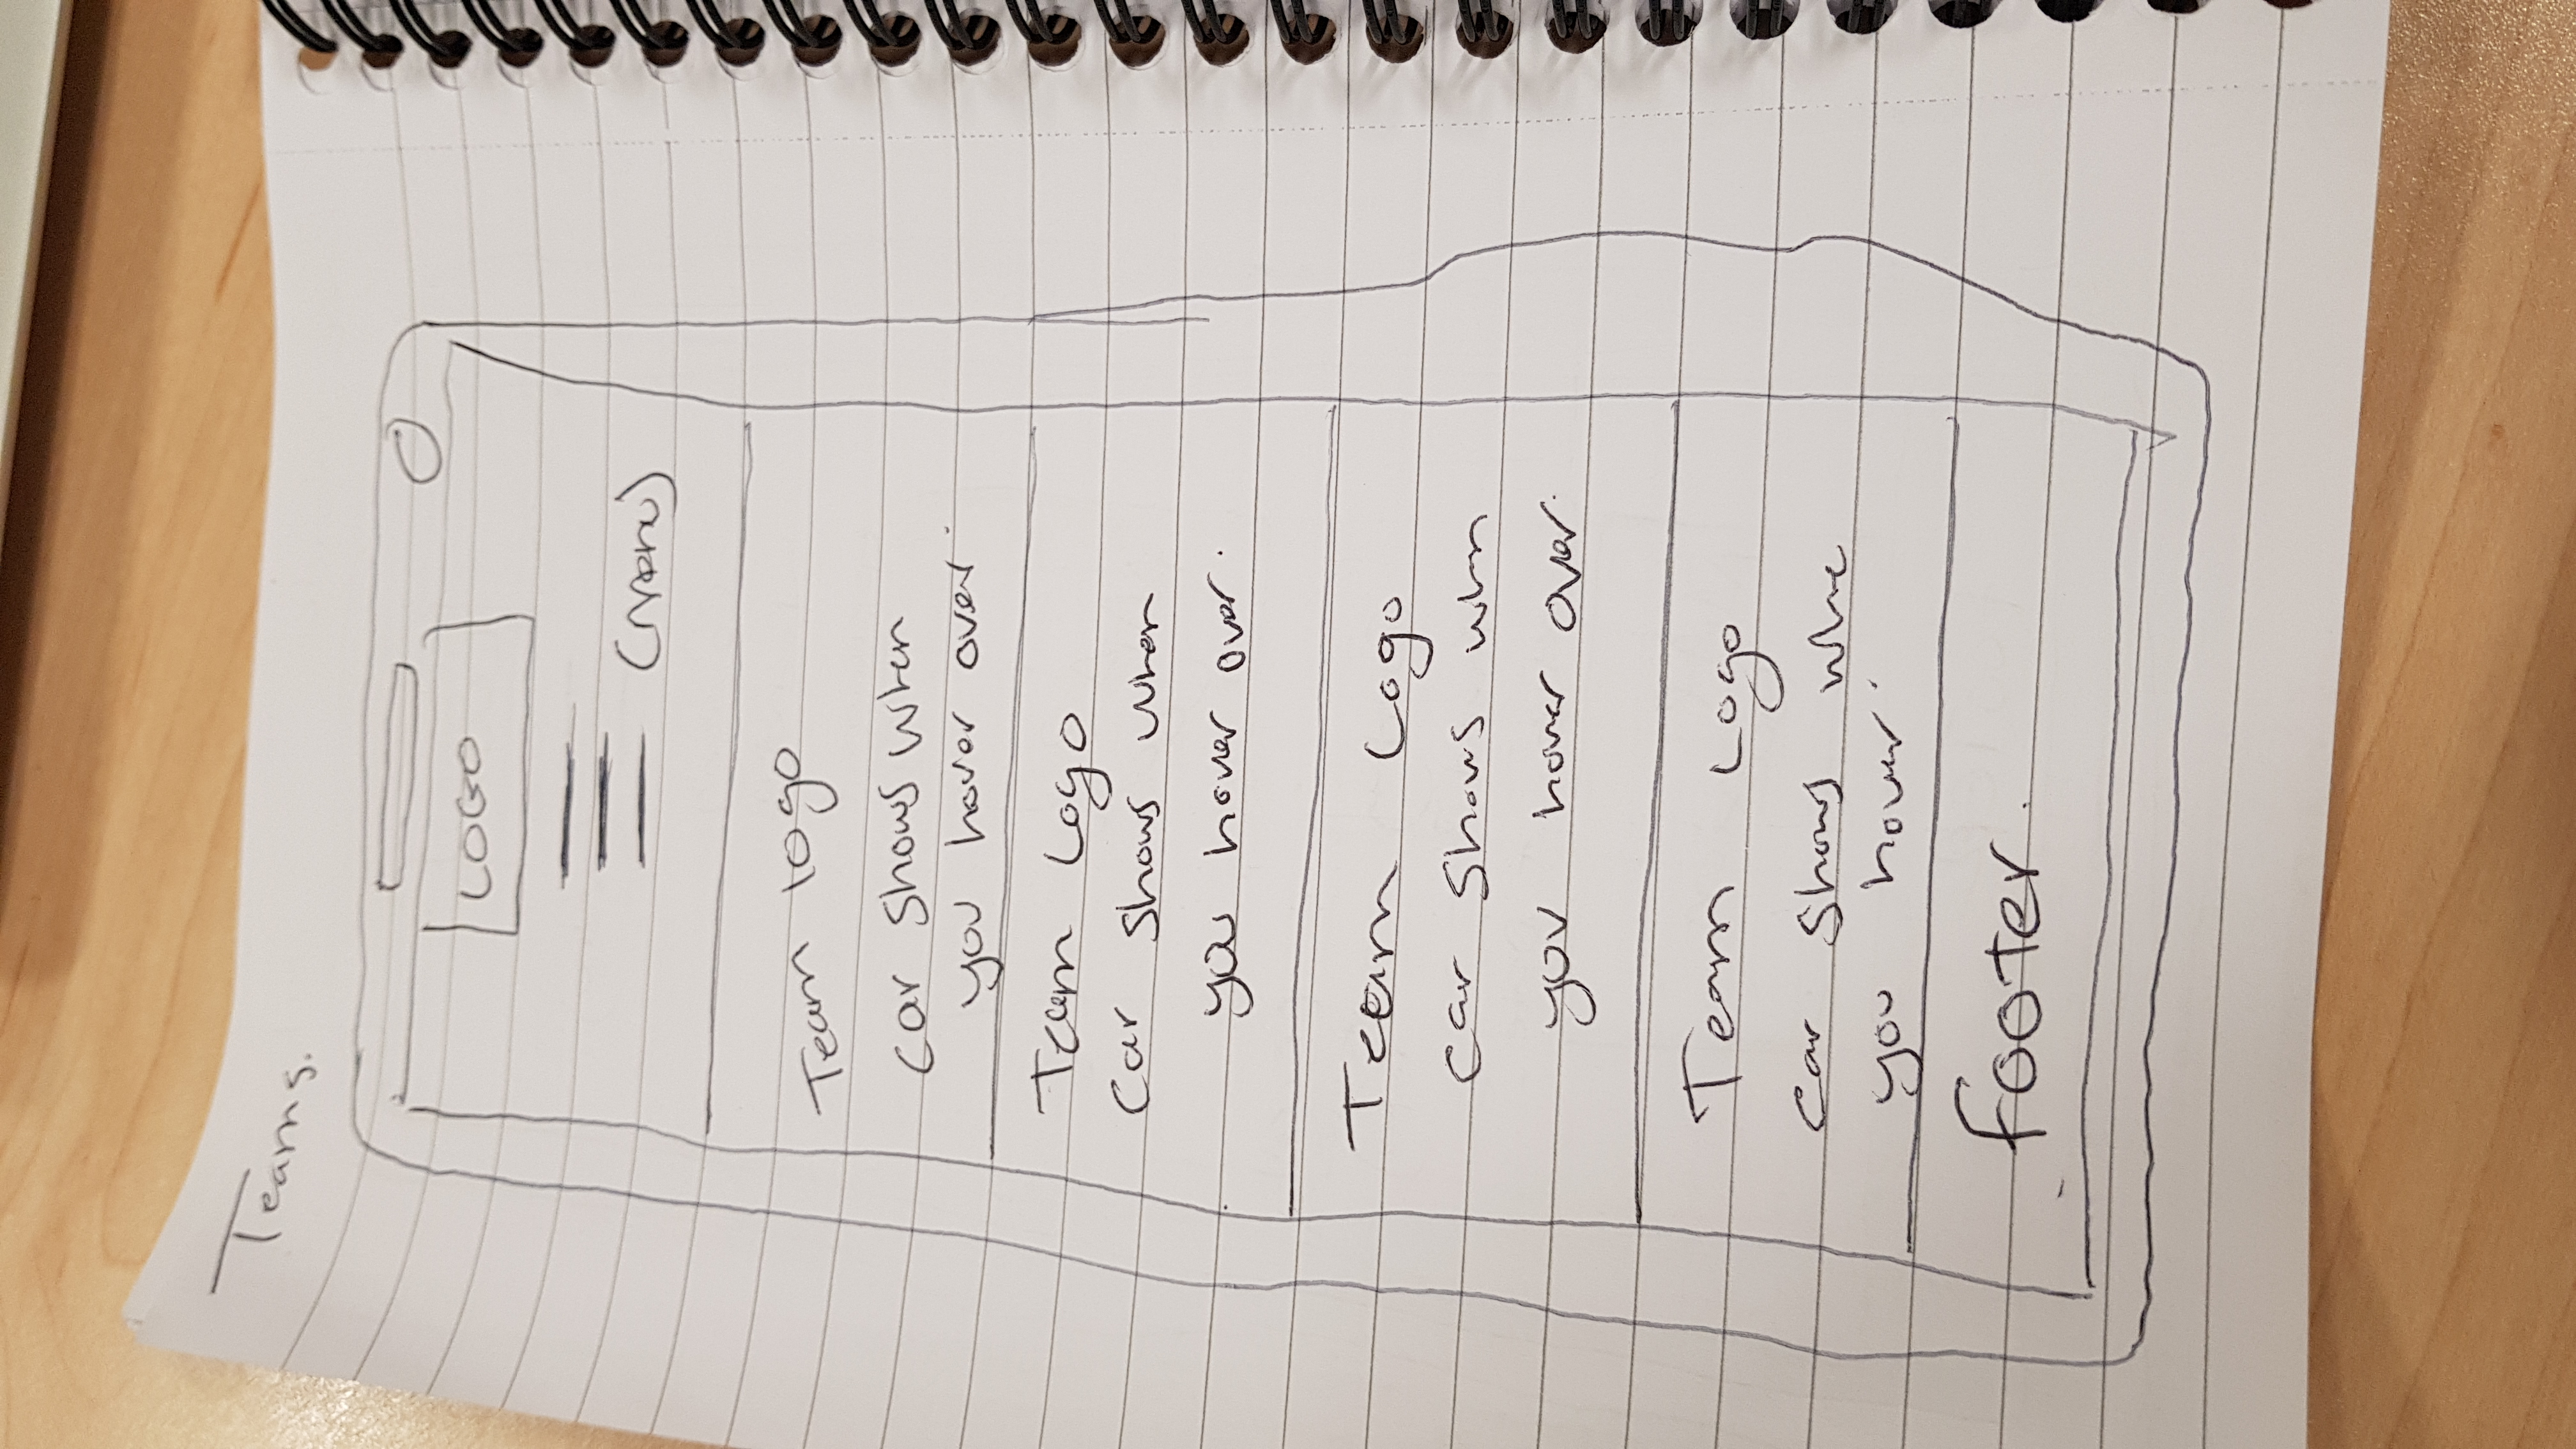 Teams.
LOGO
(Menu)
Team logo
car shows when
you hover over
Team Logo
Car shows when
you hover over.
Team Logo
car shows when
you hover over.
Team Logo
car shows
you hover
footer.